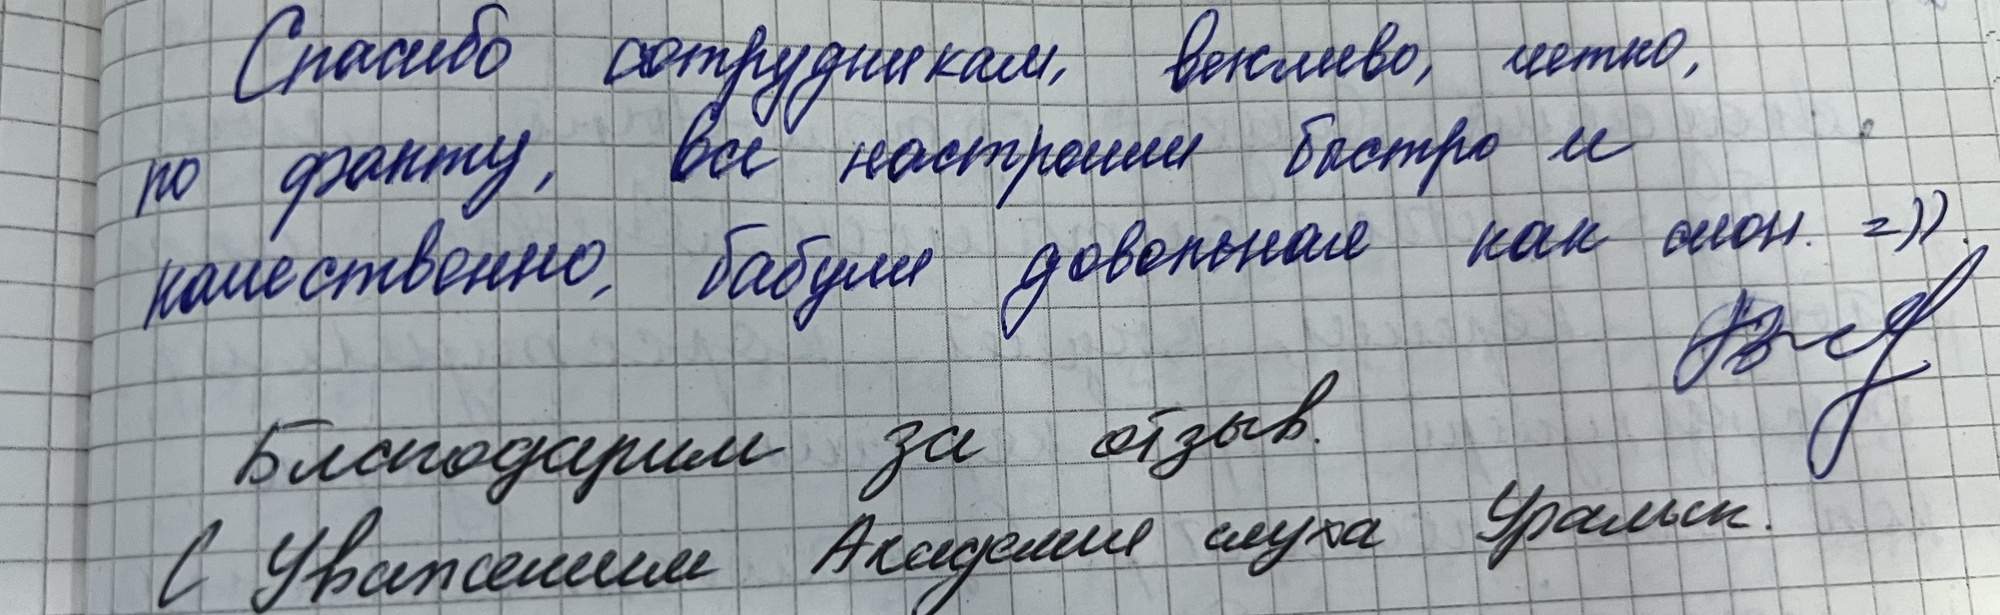 Спасибо сотрудникам, вежливо, четко,
по факту, все настроили быстро и
качественно, бабуля довольная как слон. =)).
Благодарим за отзыв.
С Уважением Академия слуха Уральск.